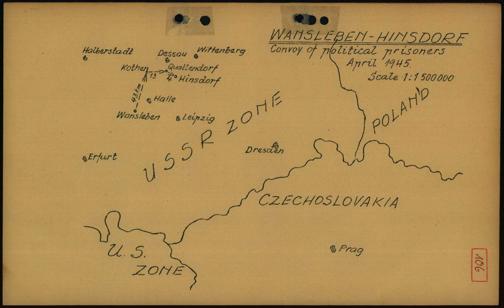 WANSLEBEN-HINSDORF
Convoy of political prisoners
April 1945
Scale 1:1500000
Halberstadt
Dessau
Wittenberg
Köthen
Quallendorf
15
6
Hinsdorf
Halle
Wansleben
Leipzig
USSR ZONE
POLAND
Erfurt
Dresden
CZECHOSLOVAKIA
U.S.
ZONE
Prag